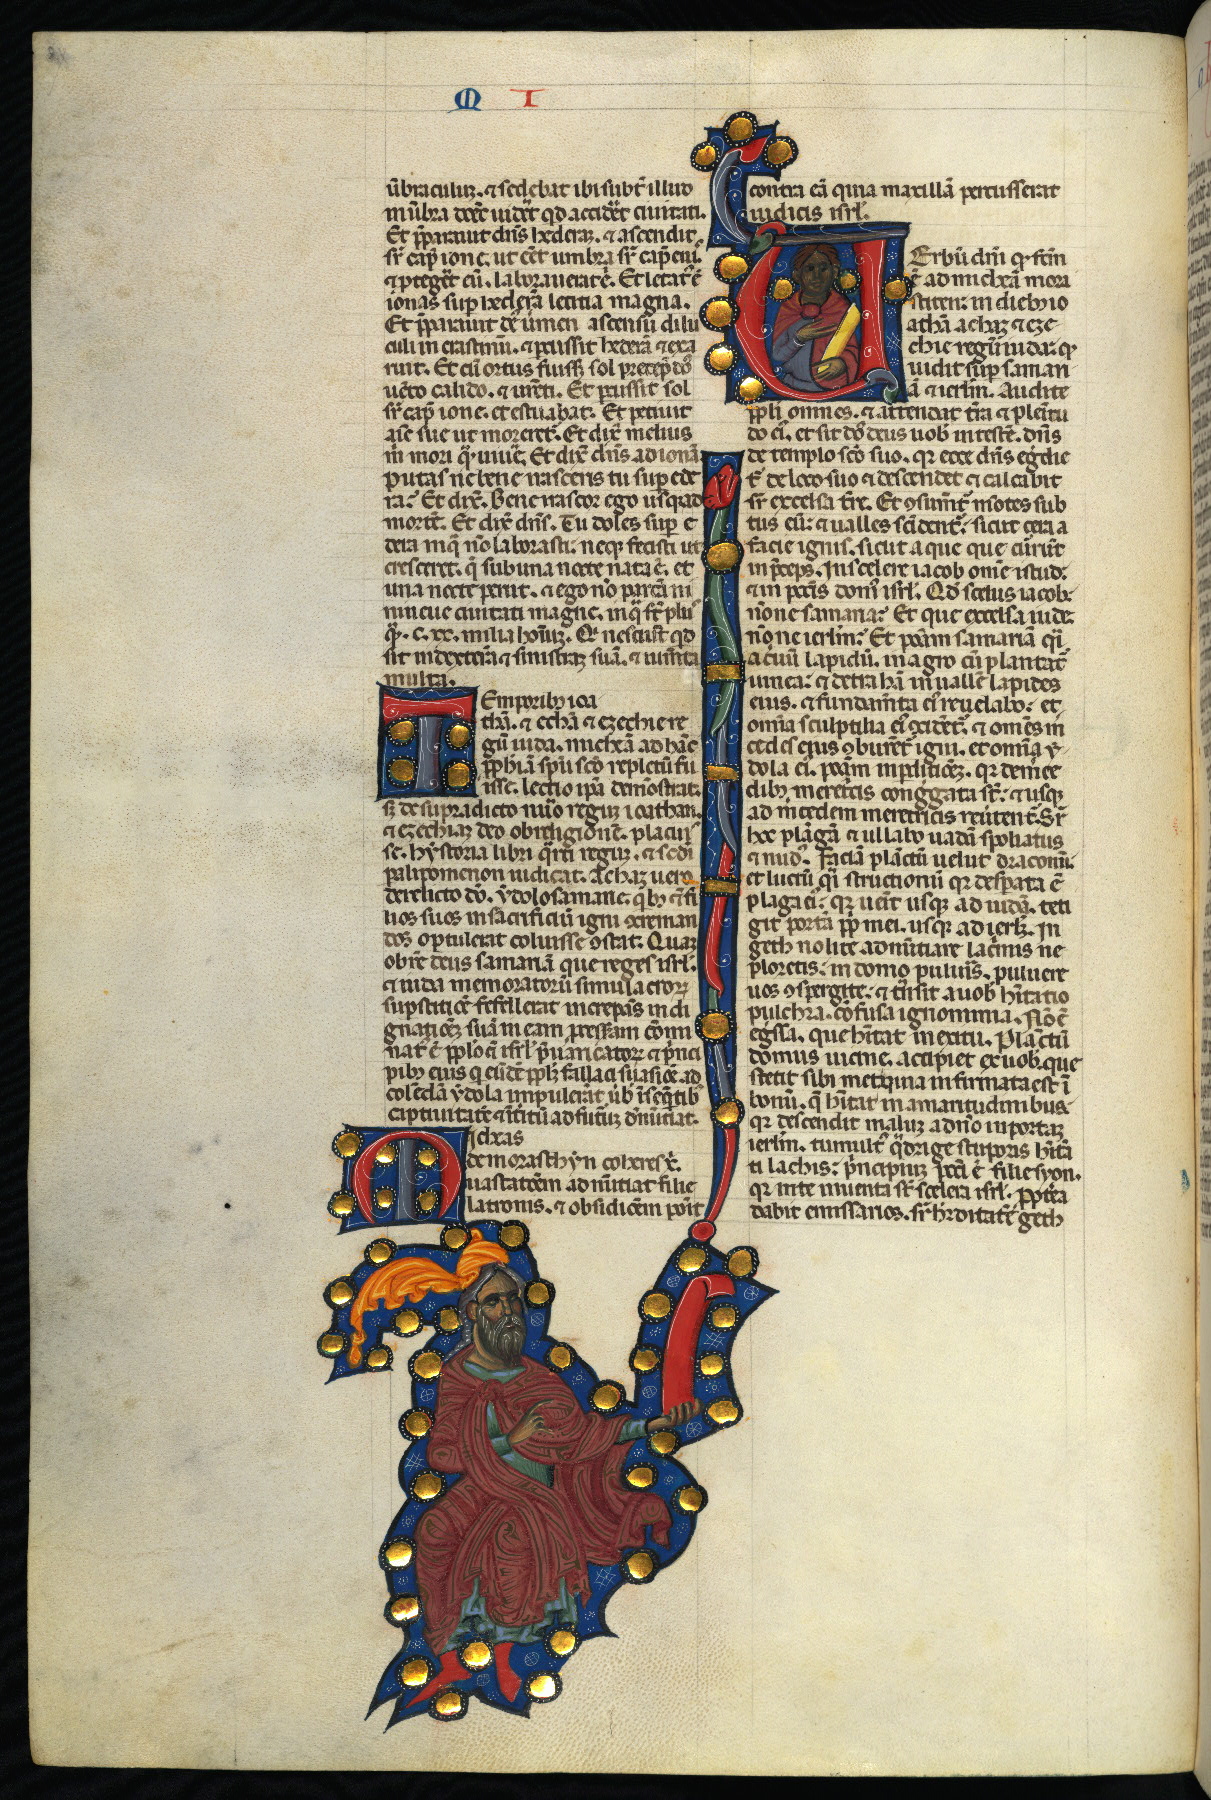 M I
ũbraculuz. ⁊ sedebat ibi subt̃ illud
in ũbra donec̃ uidẽt qd̃ accidẽt ciuitati.
Et p̃parauit dñs hederaz. ⁊ ascendit
sr̃ cap̃ ione. ut eẽt umbra sr̃ cap̃ eiu᷒.
⁊ p̃teget̃ eũ. laborauerat ẽ. Et letat᷒ ẽ
ionas sup̃ hederã letitia magna.
Et p̃parauit de᷒ u̾men ascensũ dilu
culi in crastinũ. ⁊ p̃cussit hederã ⁊ exa
ruit. Et cũ ortus fuiss̃ sol p̃cep̃ do᷒
uẽto calido. ⁊ urẽti. Et p̃cussit sol
sr̃ cap̃ ione. et estuabat. Et petiuit
aĩe sue ut moreret̃. Et dix̃ melius
m̃ mori q̃ uiue᷑. Et dix̃ dñs ad ionã
putas ne bene nasceris tu sup̃ ede
ra? Et dix̃. Bene nascor ego usq̃ ad
mortẽ. Et dix̃ dñs. Tu doles sup̃ e
derã inq̃ nõ laborasti. neq̃ fecisti ut
cresceret. q̃ sub una nocte nata ẽ. et
una nocte perit. ⁊ ego nõ parcã ni
niuene ciuitati magne. inq̃ st̃ plu᷒
q̃. c. xx. milia hoĩuz. Q᷑ nesciũt qd̃
sit int̃ dexterã ⁊ sinistraz suã. ⁊ iuṁta
multa.
Temporib᷒ ioa
thã. ⁊ echã ⁊ ezechie re
gũ iuda. michã ad hãc
p̃phiã spũ scõ repletũ fu
isse. lectio ip̃a demõstrat.
sz de supradicto nũo regũz ioathan.
⁊ ezechiaz deo ob religionẽ. placuis
se. hystoria libri q̃rti reguz. ⁊ sc̃di
palipomenon iudicat. Achaz uero
derelicto dõ. ydolo samarie. q̃b᷒ ⁊ fi
lios suos in sacrificiũ igni cremãn
dos optulerat coluisse ɔstat. Quaz
ob rẽ deus samariã que reges isrl̃.
⁊ iuda memoratorũ simulacrorz
sup̃stitiõe fefellerat increpãs indi
gnatiõez suã in eam p̃ssam cõmi
nat᷒ ẽ p̃plo q̃ isrl̃ p̃uaricatorz ⁊ p̃nci
pib᷒ eius q eũdẽ p̃plz fallaci suasiõe ad
colẽda ydola impulerãt ũb̃ ĩseq̃tib᷒
captiuitatẽ ⁊ ĩt̃itũ ad futũz dñũtiat.
Michas
de morasthyn coheres x̃.
uastatiõem adnũtiat filie
latronis. ⁊ obsidiõem poĩt
contra eã quia maxillã percusserat
iudicis isrl̃.
Uerbũ dñi q̃ fc̃m
ẽ ad michã mora
stiten: in dieb᷒ io
athã achaz ⁊ eze-
chie regũ iuda: q̃
uidit sup̃ samari
ã ⁊ ierl̃m. Audite
p̃pli omnes. ⁊ attendat t̃ra ⁊ plẽitu
do ei᷒. et sit dñs deus uob᷒ in testẽ. dñs
de templo scõ suo. qr ecce dñs eg̃die
t̃ de loco suo ⁊ descendet ⁊ calcabit
sr̃ excelsa tr̃e. Et ɔsumẽt᷒ mõtes sub
tus eũ: ⁊ ualles scĩdent᷒. sicut cera a
facie ignis. sicut aque que currũt
in p̃ceps. In scelere iacob omẽ istud:
⁊ in pcc̃is dom᷒ isrl̃. Qd̃ scelus iacob:
nõne samaria? Et que excelsa iude:
nõne ierl̃m? Et ponã samariã q̃i
aceruũ lapidũ. in agro cũ plantat᷒
uinea: ⁊ detrahã in uallẽ lapides
eius. ⁊ fundam̃ta ei᷒ reuelabo: et
omĩa sculptilia ei᷒ ɔcidẽt᷒. ⁊ omẽs m̃
cedes eius ɔburẽt᷒ igni. et omĩa y-
dola ei᷒. ponã in p̃ditiõez. qr de m̃ce
dib᷒ meretricis cong̃gata st̃: ⁊ usq̃
ad m̃cedem meretricis reũtent᷒. Sr̃
hoc plãgã ⁊ ululabo uadã spoliatus
⁊ nud᷒. faciã plãctũ uelut draconũ.
et luctũ q̃i structionũ qr desp̃ata ẽ
plaga ei᷒: qr uẽit usq̃ ad iudã. teti
git portã pp̃ mei. usq̃ ad ierlz. In
geth nolite adnũtiare lac̃imis ne
ploretis: in domo pulũis. puluere
uos ɔspergite: ⁊ trãsit a uob᷒ hĩtatio
pulchra. cõfusa ignominia. Nõ ẽ
eg̃ssa. que hĩtat in exitu. Planctũ
domus uicine. accipiet ex uob᷒. que
stetit sibi metipsa infirmata est ĩ
bonũ. q̃ hĩtat in amaritudinibus:
qr descendit maluz a dño in portaz
ierl̃m. tumult᷒ q̃drige stuporis hĩtã
ti lachis: p̃ncipiuz pcc̃i ẽ filie syon.
qr in te inuenta st̃ scelera isrl̃. P̃pt̃ea
dabit emissarios. sr̃ hr̃ditatẽ geth